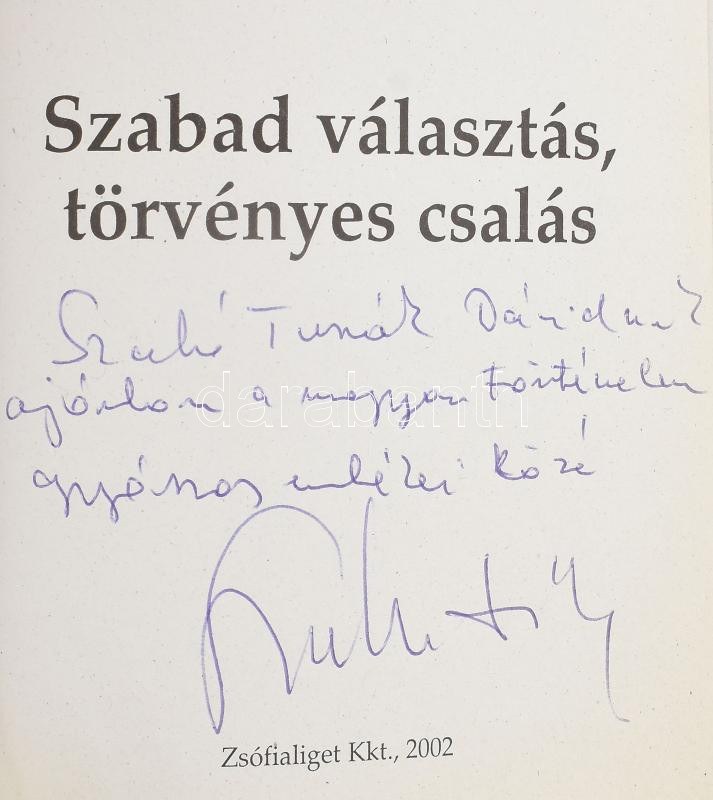 Szabad választás,
törvényes csalás
Szabó Tunák Dávidnak
ajánlom a magyar történelem
gyászos emlékei közé
darabanth
Zsófialiget Kkt., 2002